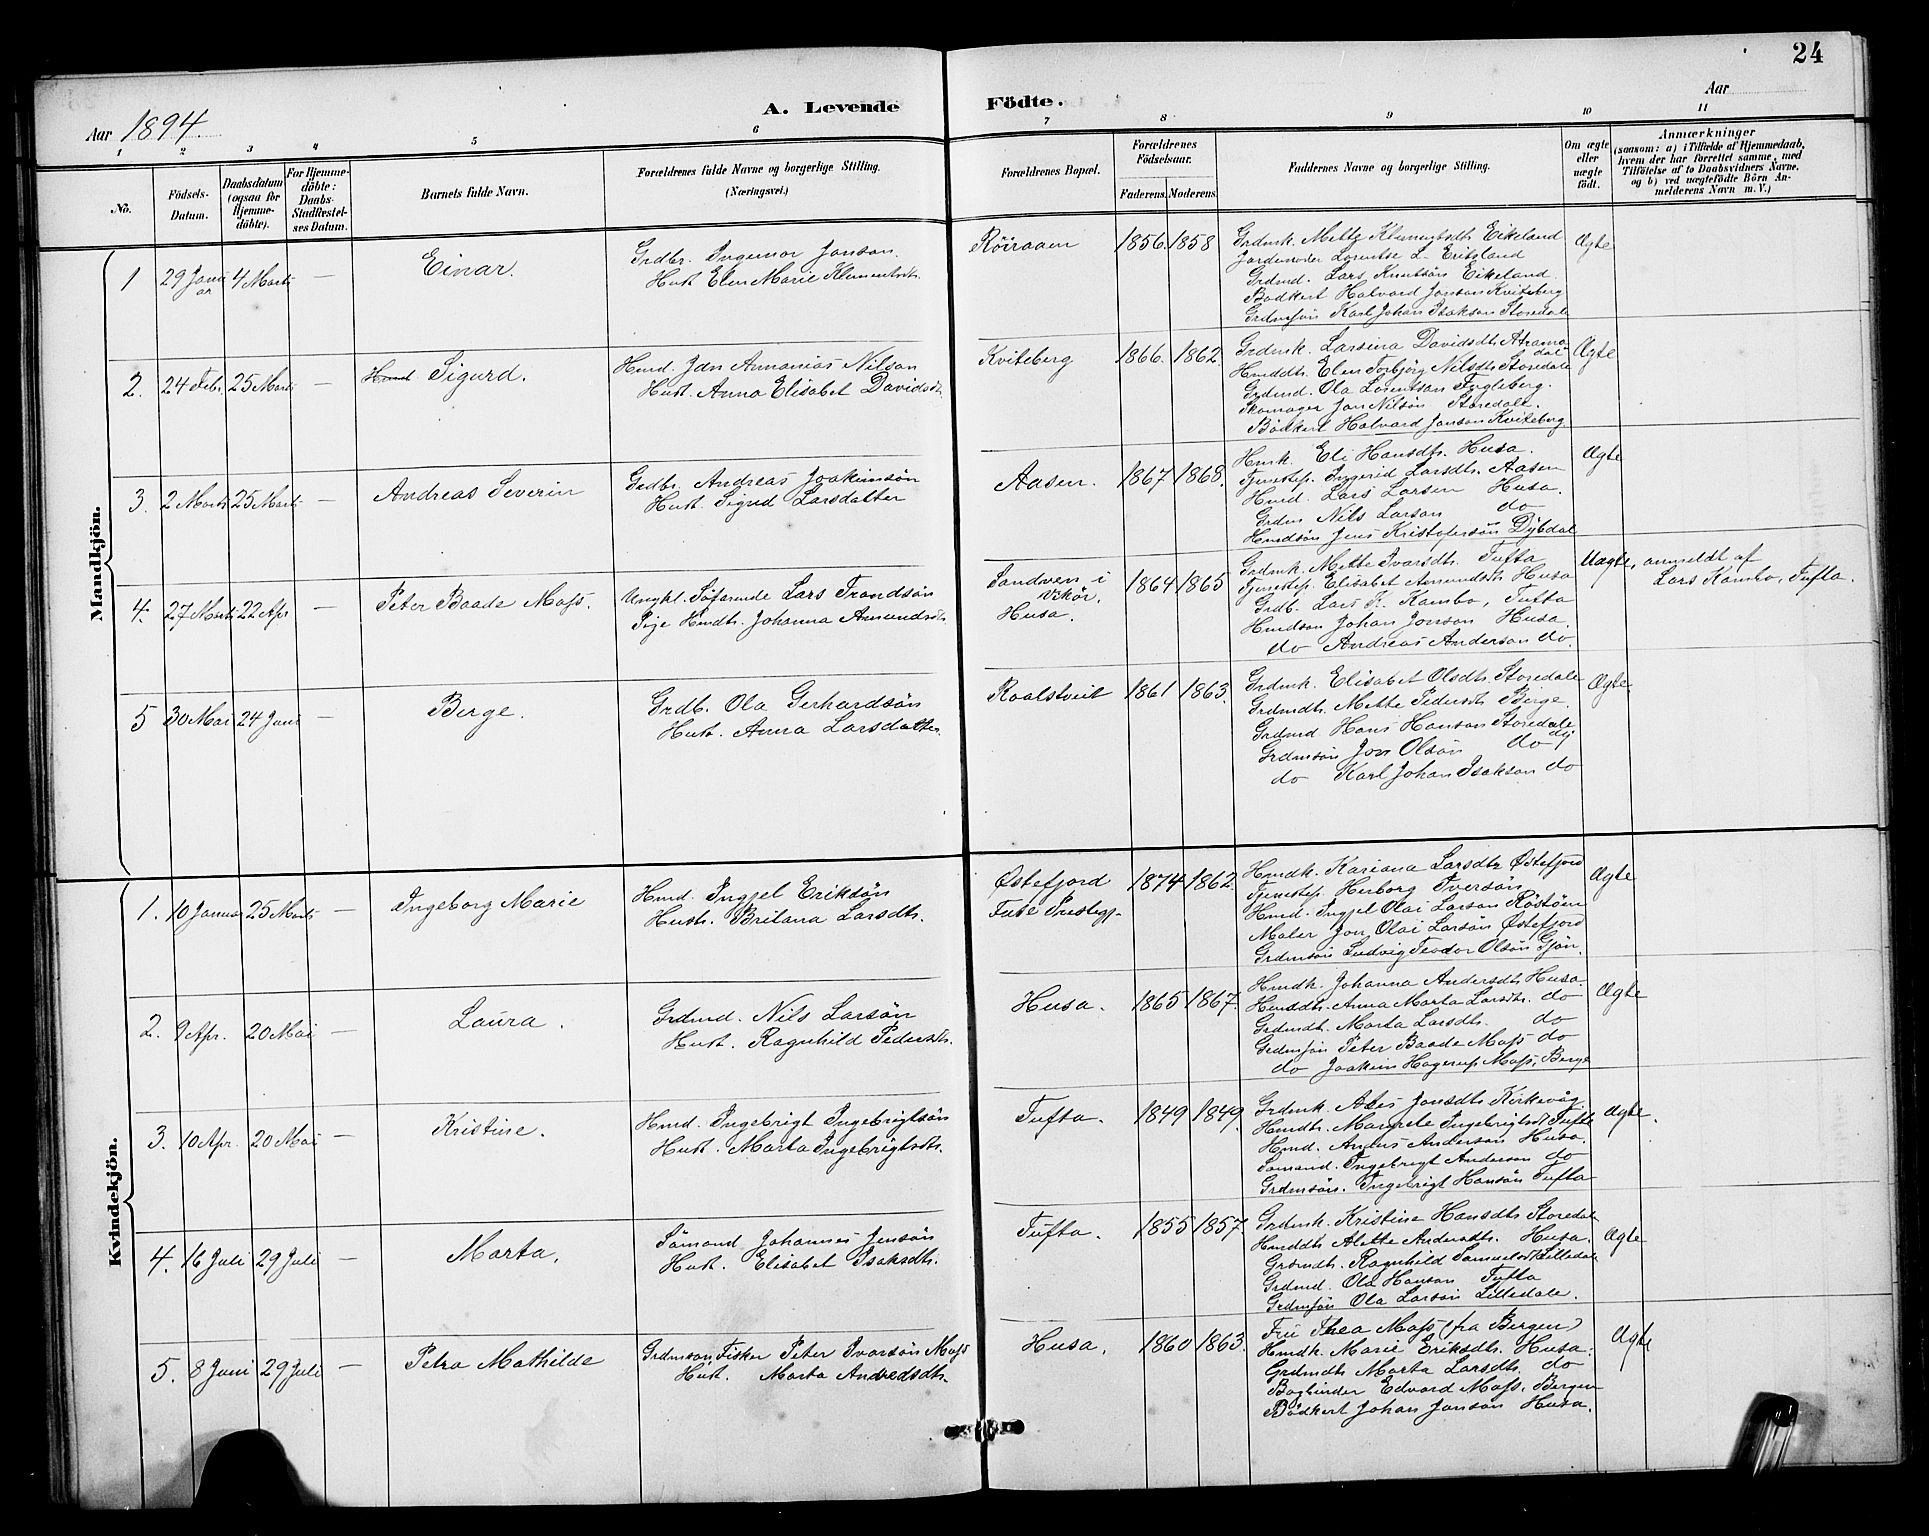 24
Aar 1894.
A. Levende Födte.
Aar
1 2 3 4 5 6 7 8 9 10 11
No.
Födsels-Datum.
Daabsdatum (ogsaa for Hjemmedöbte).
For Hjemmedöbte: Daabs-Stadfestelses Datum.
Barnets fulde Navn.
Forældrenes fulde Navne og borgerlige Stilling.
(Næringsvei.)
Forældrenes Bopæl.
Forældrenes Födselsaar.
Faderens. Moderens.
Faddernes Navne og borgerlige Stilling.
Om ægte eller uægte födt.
Anmærkninger
(saasom: a) i Tilfælde af Hjemmedaab,
hvem der har forrettet samme, med
Tilföielse af to Daabsvidners Navne,
og b) ved uægtefödte Börn An-
melderens Navn m. V.)
Mandkjön.
1 29 Januar 4 Marts — Einar.
Grdbr. Ingemor Jonson.
Hust. Elen Marie Klementsdt.
Röiraaen 1856. 1858
Grdmk. Mette Klementsdt. Eikeland
Jordemoder Lorentse L. Eikeland
Grdmd. Lars Knutsön Eikeland.
Bödkert Halvard Jonson Kviteberg
Grdmsön Karl Johan Isakson Storedale
Ægte
2. 24 Febr. 25 Marts — Sigurd.
Hmd. Jon Annanias Nilson
Hust. Anna Elisabet Davidsdt.
Kviteberg 1866. 1862.
Grdmk. Larsina Davidsdt. Axamodal
Hmddt. Elen Torbjörg Nilsdt. Storedale
Grdmd. Ola Lorentson Fugleberg.
Skomager Jon Nilsön Storedale.
Bödkert Halvard Jonson Kviteberg
Ægte
3. 2 Marts 25 Marts — Andreas Severin
Grdbr. Andreas Joakimsön
Hust. Sigrid Larsdatter
Aasen. 1867 1868.
Hmk. Eli Hansdt. Husa.
Tjenestep. Inggerid Larsdt. Aasen
Hmd. Lars Larsen Husa.
Grdm. Nils Larson do
Hmdsön Jens Kristofersön Dybdal
Ægte
4. 27 Marts 22 Apr — Peter Baade Mohs.
Ungkl. Söfarende Lars Trondsön
Pige Hmdt. Johanna Amundsdt.
Sandven i Vikör.
Husa.
1864 1865
Grdmk. Mette Ivarsdt. Tufta
Tjenestep. Elisabet Amundsdt. Husa
Grdb. Lars K. Kambo, Tufta
Hmdson Johan Jonson Husa.
do Andreas Anderson do.
Uægte, anmeldt af
Lars Kambo, Tufta.
5 30 Mai 24 Juni — Berge.
Grdb. Ola Gerhardsön
Hust. Anna Larsdatter
Roalstveit 1861 1863.
Grdmk. Elisabet Olsdt. Storedale
Grdmdt. Mette Pedersdt. Berge.
Grdmd Hans Hanson Storedale
Grdmsön Jon Olsön do
do Karl Johan Isakson do
Ægte.
Kvindekjön.
1. 10 Januar 25 Marts — Ingeborg Marie
Hmd. Ingjel Eriksön
Hust. Britana Larsdt.
Østefjord
Fuse Prestegj.
1874 1862.
Hmdk. Kariana Larsdtr Østefjord
Tjenestep. Herborg Iversön
Hmd. Ingjel Olai Larson
Maler Jon Olai Larsön Østefjord
Grdmsön Ludvig Teodor Olsön Gjön.
Ægte
2. 9 Apr. 20 Mai — Laura.
Grdmd. Nils Larsön
Hust. Ragnhild Pedersdt.
Husa. 1865 1867.
Hmdk. Johanna Andersdt. Husa.
Hmddt. Anna Marta Larsdt. do
Grdmdt. Marta Larsdt. do
Grdmsön Peter Baade Mohs do
do Joakim Hagerup Mohs, Berge
Ægte
3. 10 Apr. 20 Mai — Kristine.
Hmd. Ingebrigt Ingebrigtsön
Hust. Marta Ingebrigtsdt.
Tufta. 1849 1849.
Grdmk. Ales Jonsdt. Kirkevig
Hmdt. Margrete Ingebrigtsdt Tufte
Hmd. Anders Anderson Husa.
Sömand. Ingebrigt Anderson do
Grdmsön. Ingebrigt Hansön Tufta
Ægte.
4. 16 Juli 29 Juli — Marta.
Sömand Johannes Jensön
Hust. Elisabet Isaksdt.
Tufta. 1855 1857.
Grdmk. Kristine Hansdt. Storedale
Hmddt. Alette Andersdt. Husa.
Grdmdt. Ragnhild Samuelsdt Lilledale
Grdmd. Ola Hanson Tufta
Grdmsön Ola Larson Lilledale.
Ægte
5. 8 Juni 29 Juli — Petra Mathilde
Grdmson Fisker Peter Ivarsön Mohs
Hust. Marta Andredsdt.
Husa. 1860 1863.
Fru Thea Mohs (fra Bergen)
Hmdk. Marie Eriksdt. Husa.
Grdmdt. Marta Larsdt. do
Bogbinder Edvard Mohs. Bergen
Bödkert Johan Jonson Husa.
Ægte